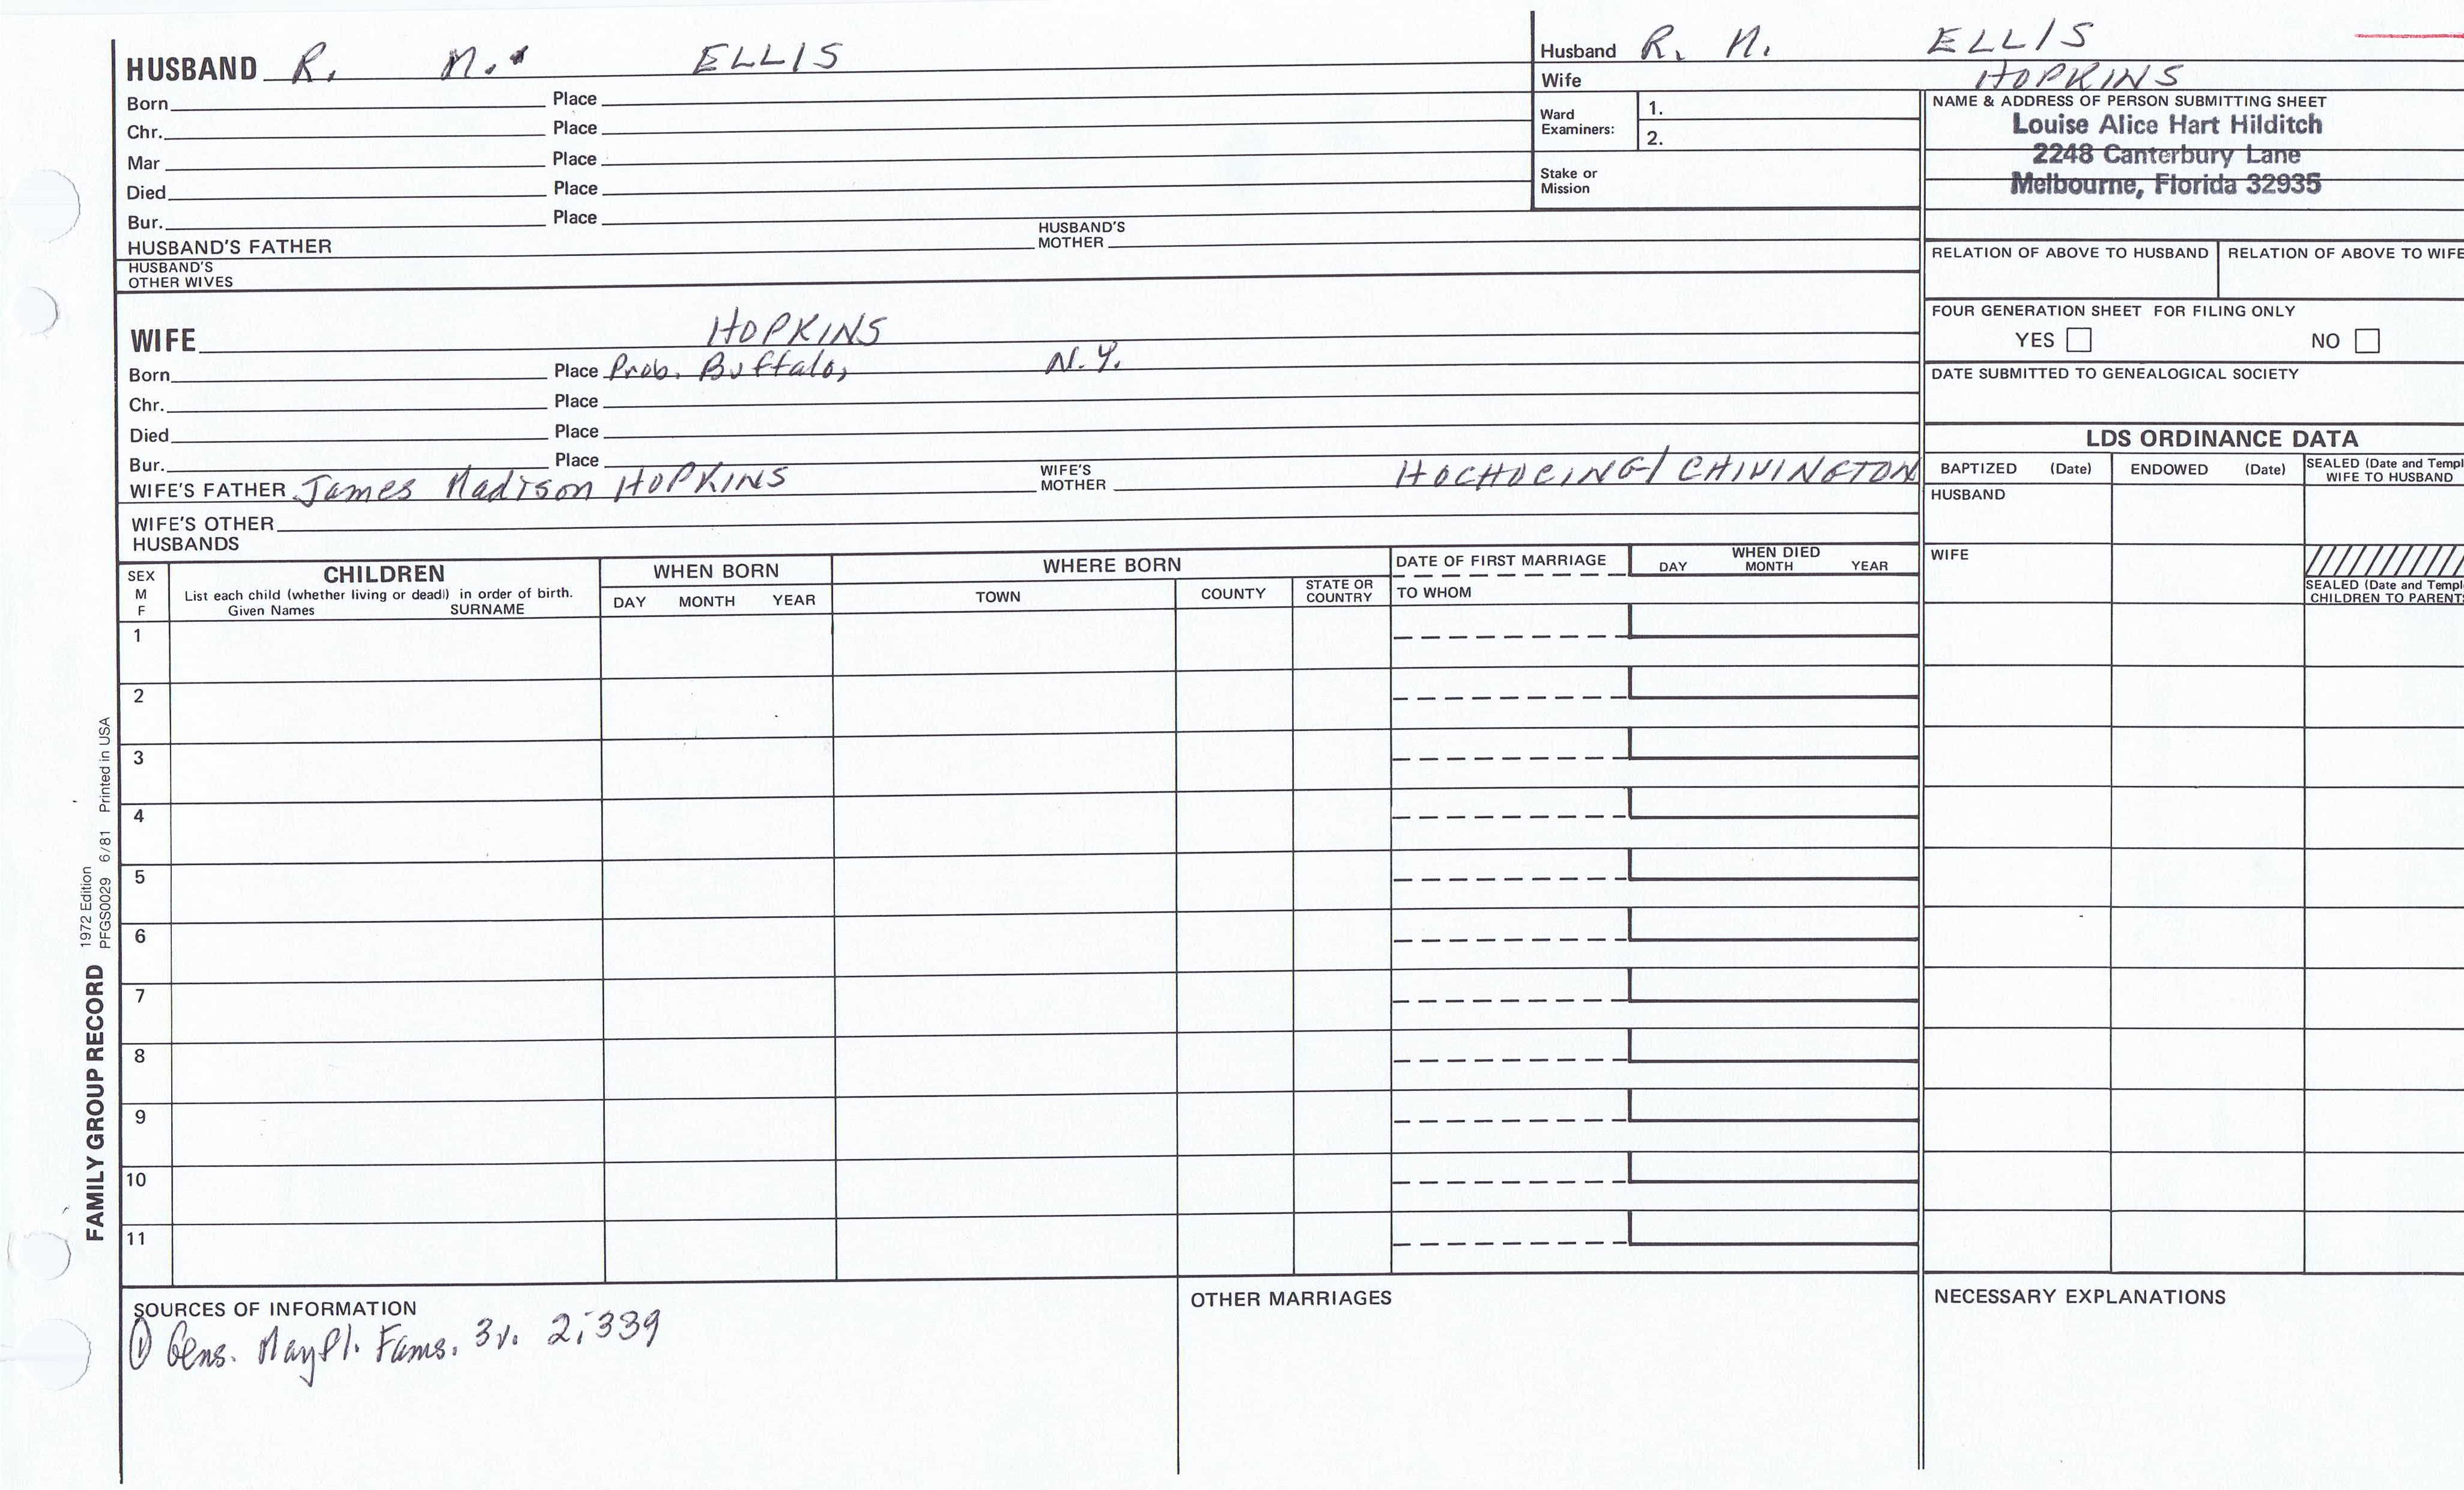 HUSBAND R. M. ELLIS
Born Place
Chr. Place
Mar Place
Died Place
Bur. Place
HUSBAND'S FATHER HUSBAND'S MOTHER
HUSBAND'S OTHER WIVES
WIFE HOPKINS
Born Place Prob. Buffalo, N.Y.
Chr. Place
Died Place
Bur. Place
WIFE'S FATHER James Madison HOPKINS WIFE'S MOTHER HOCHOCING/CHIVINGTON
WIFE'S OTHER HUSBANDS
Husband R. M. ELLIS
Wife HOPKINS
Ward Examiners: 1.
2.
Stake or Mission
NAME & ADDRESS OF PERSON SUBMITTING SHEET
Louise Alice Hart Hilditch
2248 Canterbury Lane
Melbourne, Florida 32935
RELATION OF ABOVE TO HUSBAND RELATION OF ABOVE TO WIFE
FOUR GENERATION SHEET FOR FILING ONLY
YES NO
DATE SUBMITTED TO GENEALOGICAL SOCIETY
LDS ORDINANCE DATA
BAPTIZED (Date) ENDOWED (Date) SEALED (Date and Templ
WIFE TO HUSBAND
HUSBAND
WIFE
SEALED (Date and Templ
CHILDREN TO PARENTS
SEX
M
F
CHILDREN
List each child (whether living or dead) in order of birth.
Given Names SURNAME
WHEN BORN
DAY MONTH YEAR
WHERE BORN
TOWN COUNTY STATE OR COUNTRY
DATE OF FIRST MARRIAGE
TO WHOM
WHEN DIED
DAY MONTH YEAR
1
2
3
4
5
6
7
8
9
10
11
SOURCES OF INFORMATION
① Gens. Mayfl. Fams. 3v. 2:339
OTHER MARRIAGES
NECESSARY EXPLANATIONS
FAMILY GROUP RECORD 1972 Edition
PFGS0029 6/81 Printed in USA